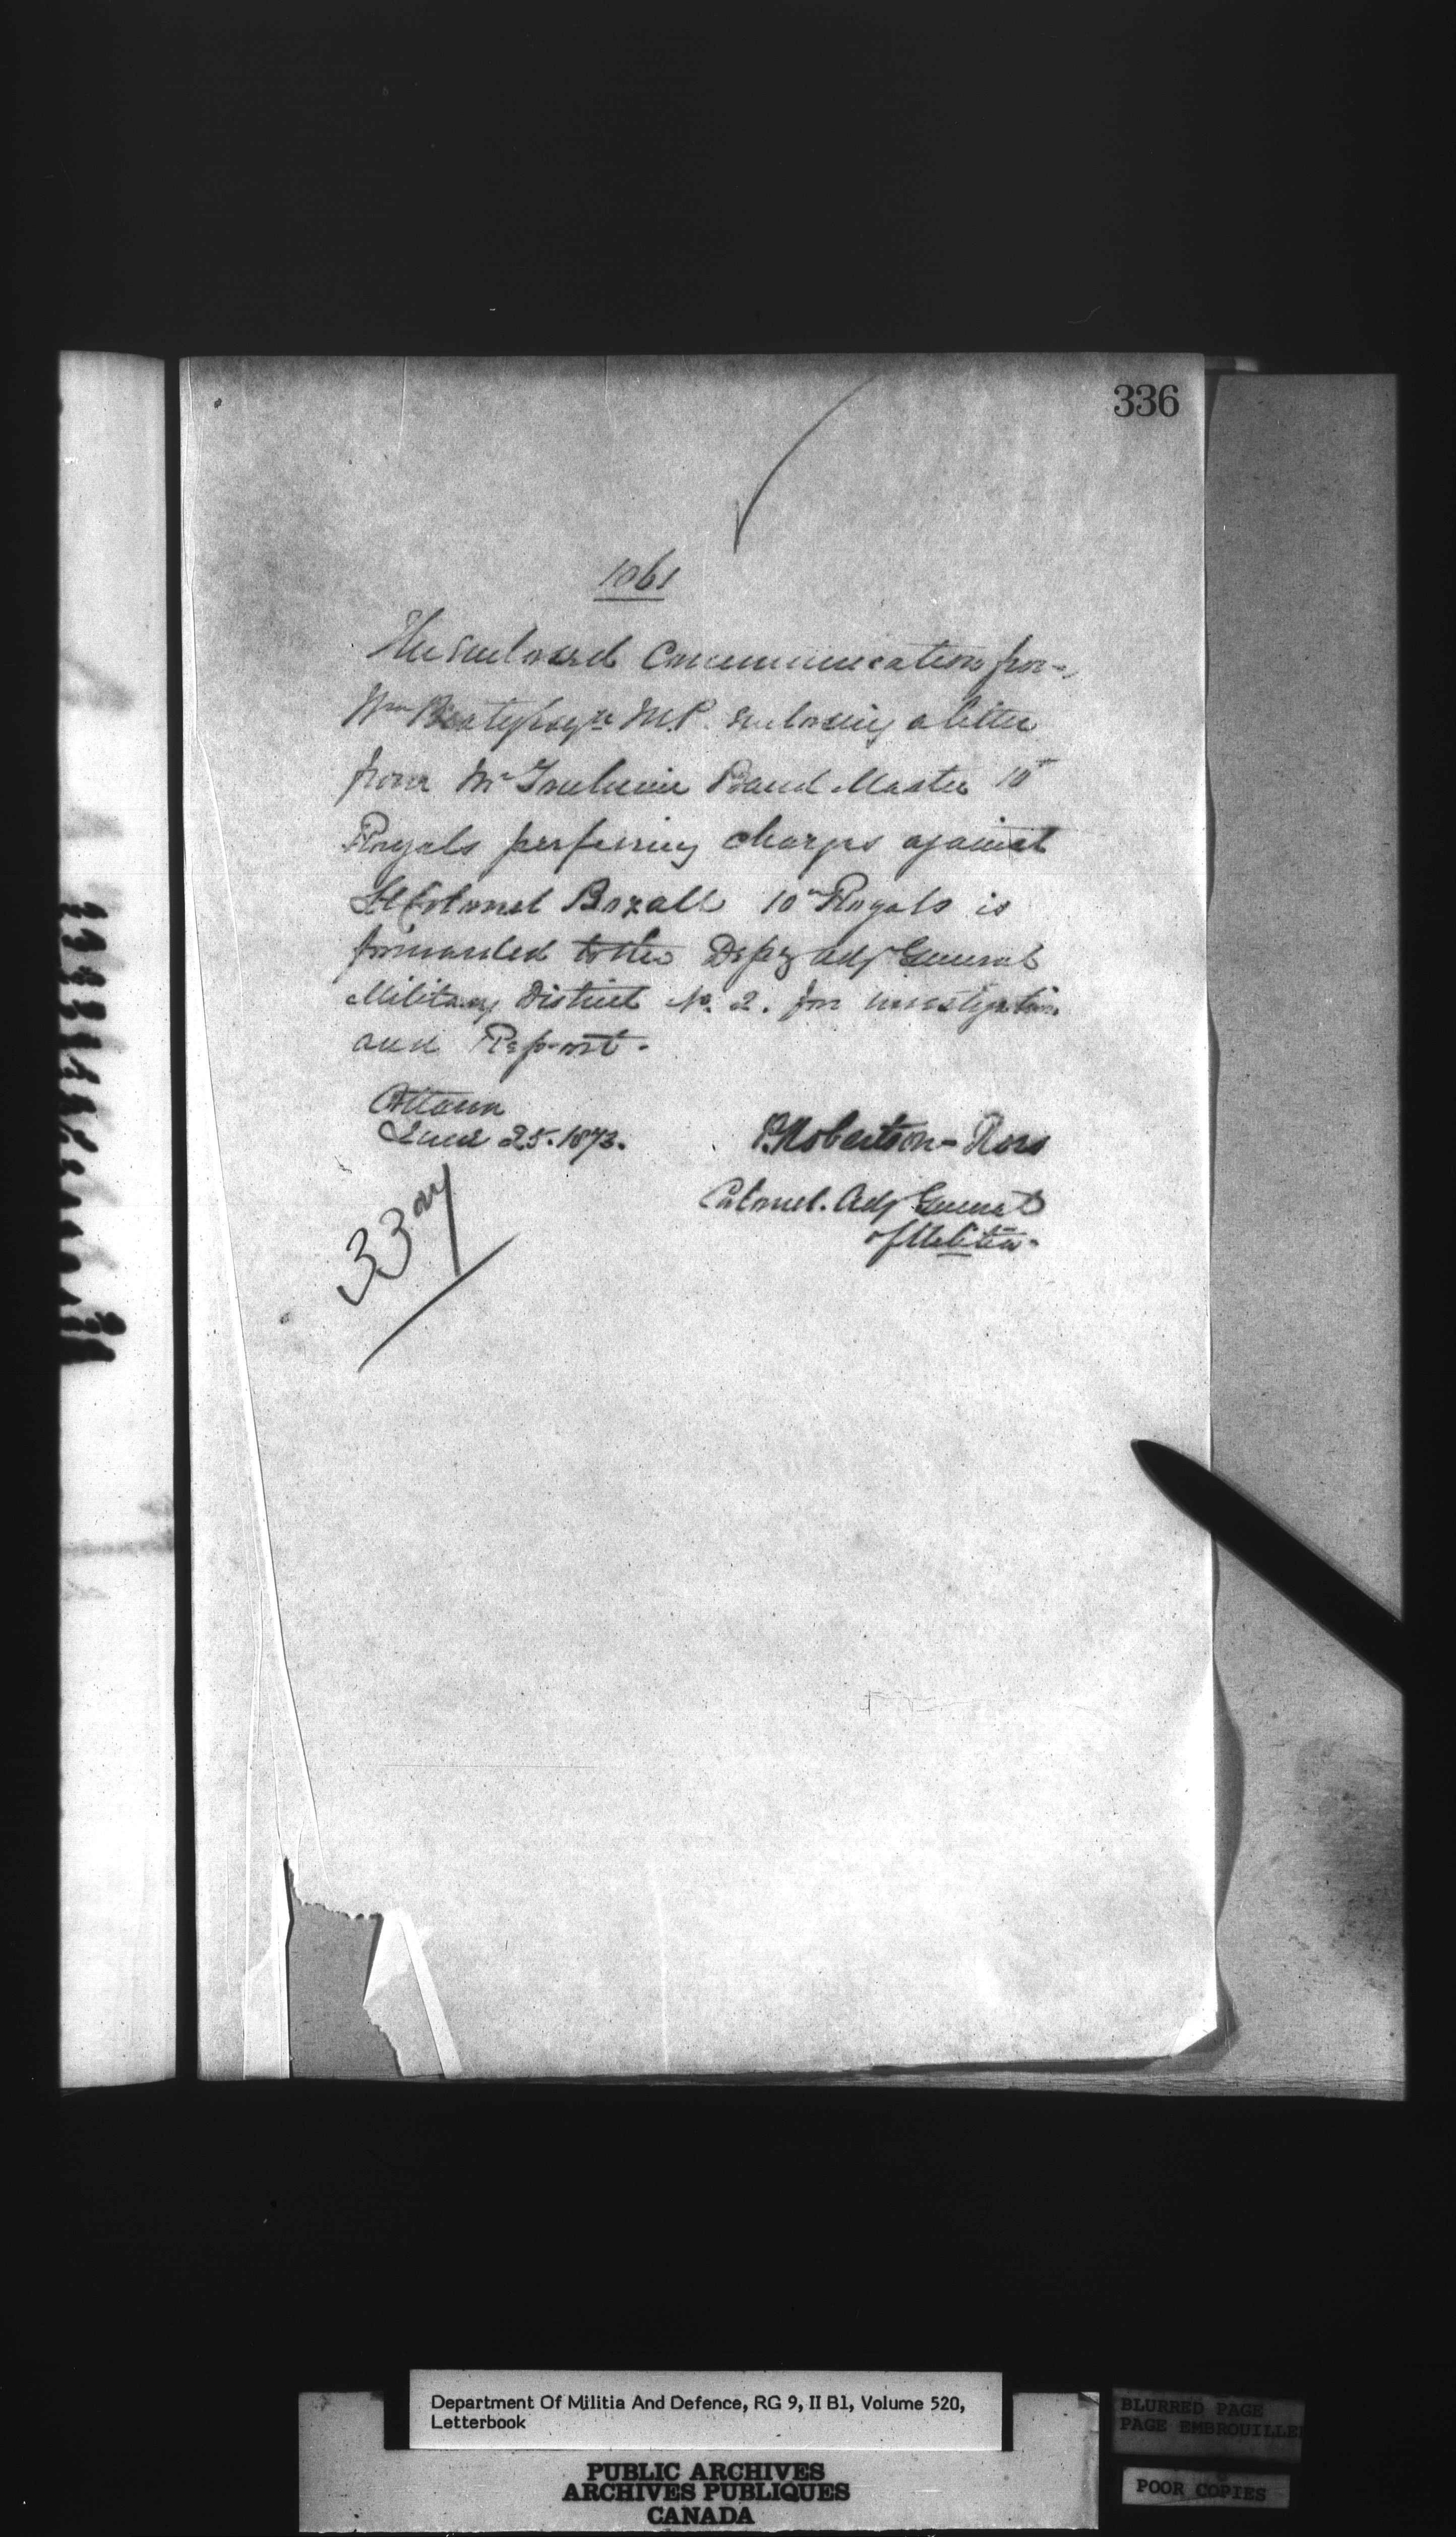 336
1061
The enclosed Communication from
Wm Beaty Esqre M.P. enclosing a letter
from Mr Band Master 10th
Royals perferring charges against
Lt Colonel Boxall 10th Royals is
forwarded to the Depy Adj General
Military District No. 2. for investigation
and Report.
Ottawa
June 25. 1873.
P. Robertson-Ross
Colonel. Adj General
of Militia.
33
Department Of Militia And Defence, RG 9, II B1, Volume 520,
Letterbook
PUBLIC ARCHIVES
ARCHIVES PUBLIQUES
CANADA
BLURRED PAGE
PAGE EMBROUILLEE
POOR COPIES